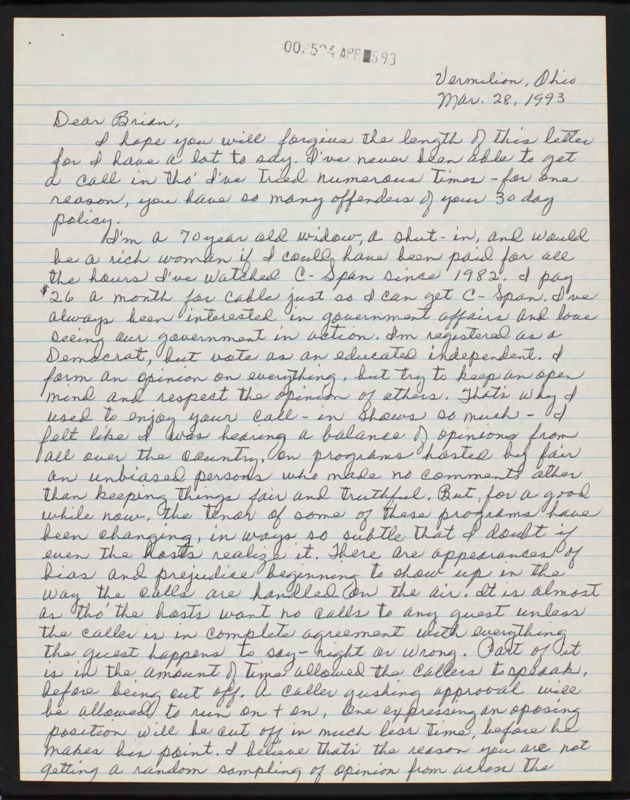 APR 593
Vermilion, Ohio
Mar. 28, 1993
Dear Brian,
I hope you will forgive the length of this letter
for I have a lot to say. I've never been able to get
a call in tho' I've tried numerous times - for one
reason, you have so many offenders of your 30 day
policy.
I'm a 70 year old widow, a shut-in, and would
be a rich woman if I could have been paid for all
the hours I've watched C-Span since 1982. I pay
$26 a month for cable just so I can get C-Span. I've
always been interested in government affairs and love
seeing our government in action. I'm registered as a
Democrat, but vote as an educated independent. I
form an opinion on everything, but try to keep an open
mind and respect the opinion of others. That's why I
used to enjoy your call-in shows so much - I
felt like I was hearing a balance of opinions from
all over the country, on programs hosted by fair
an unbiased persons who made no comments other
than keeping things fair and truthful. But, for a good
while now, the tenor of some of these programs have
been changing, in ways so subtle that I doubt if
even the hosts realize it. There are appearances of
bias and prejudice beginning to show up in the
way the calls are handled on the air. It is almost
as tho' the hosts want no calls to any guest unless
the caller is in complete agreement with everything
the guest happens to say - right or wrong. Part of it
is in the amount of time allowed the callers to speak,
before being cut off. A caller gushing approval will
be allowed to run on + on, One expressing an oposing
position will be cut off in much less time, before he
makes his point. I believe that's the reason you are not
getting a random sampling of opinion from across the